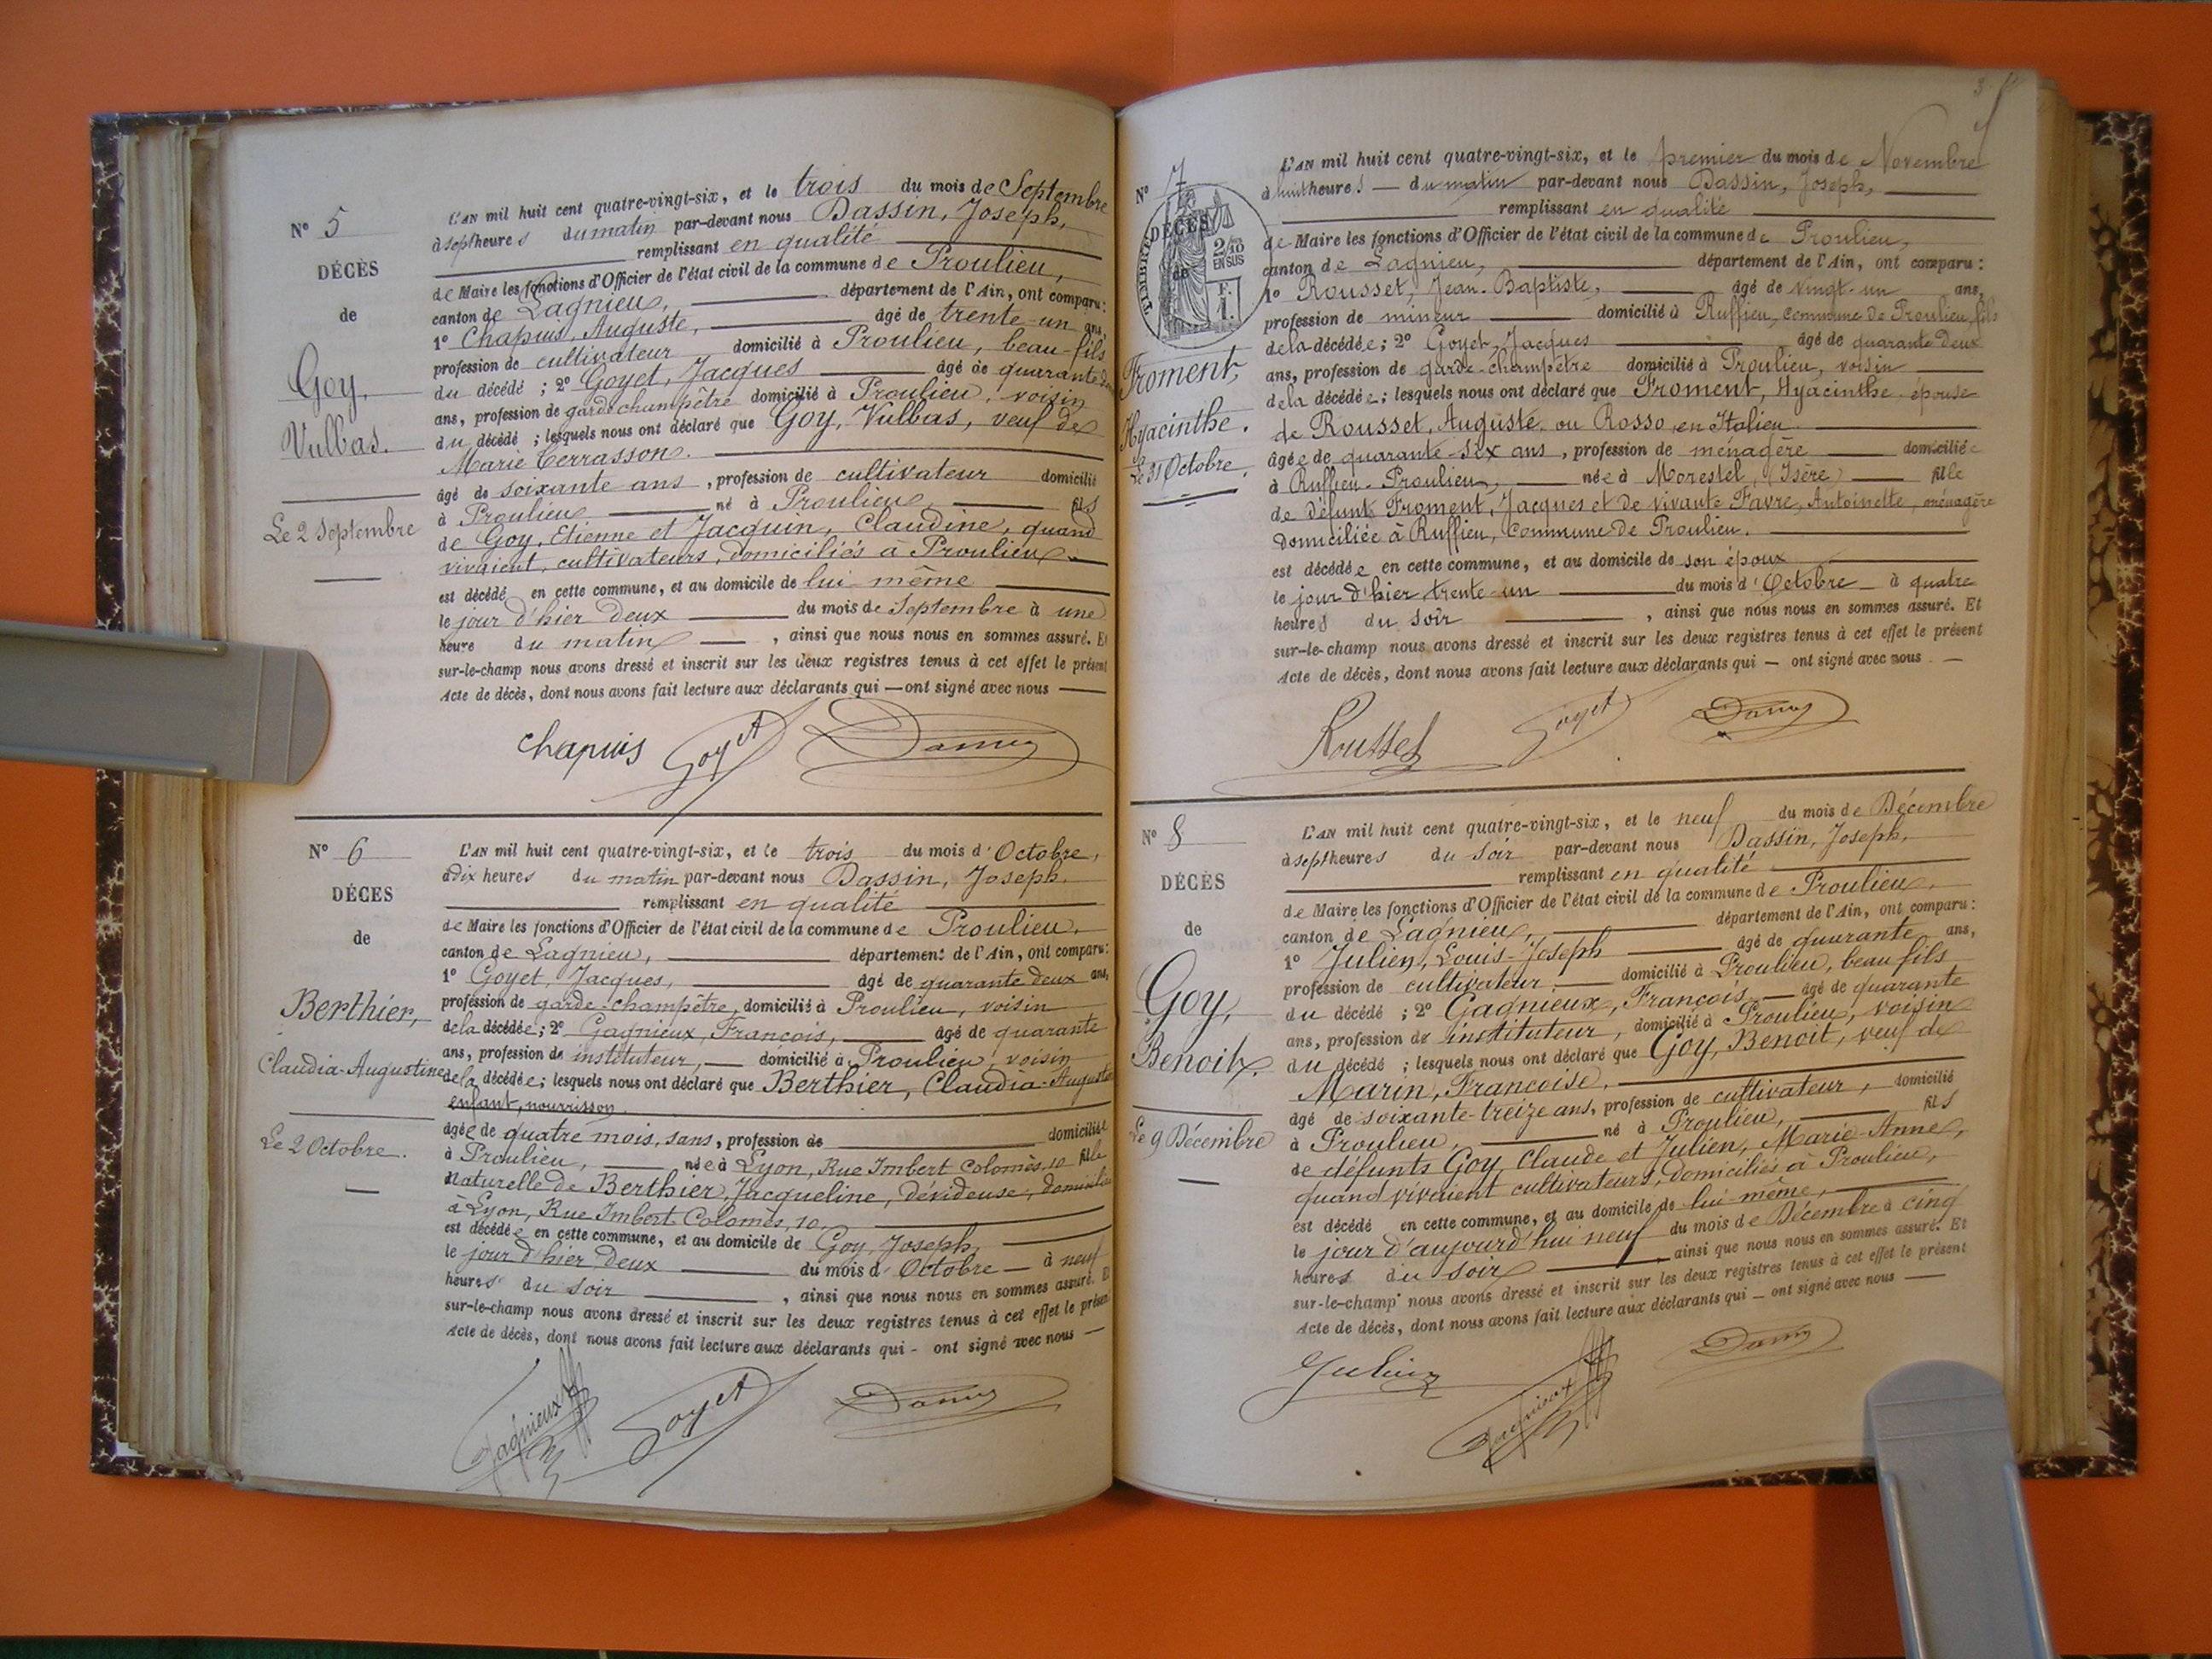 N° 5
DÉCÈS
de
Goy,
Vulbas.
Le 2 Septembre
L'AN mil huit cent quatre-vingt-six, et le trois du mois de Septembre
à sept heures du matin par-devant nous Dassin, Joseph,
remplissant en qualité
de Maire les fonctions d'Officier de l'état civil de la commune de Proulieu,
canton de Lagnieu, département de l'Ain, ont comparu:
1° Chapuis, Auguste, âgé de trente-un ans,
profession de cultivateur domicilié à Proulieu, beau-fils
du décédé ; 2° Goyet, Jacques âgé de quarante deux
ans, profession de garde champêtre domicilié à Proulieu, voisin
du décédé ; lesquels nous ont déclaré que Goy, Vulbas, veuf de
Marie Cerrasson.
âgé de soixante ans, profession de cultivateur domicilié
à Proulieu né à Proulieu fils
de Goy, Etienne et Jacquin, Claudine, quand
vivaient, cultivateurs, domiciliés à Proulieu
est décédé en cette commune, et au domicile de lui-même
le jour d'hier deux du mois de Septembre à une
heure du matin, ainsi que nous nous en sommes assuré. Et
sur-le-champ nous avons dressé et inscrit sur les deux registres tenus à cet effet le présent
Acte de décès, dont nous avons fait lecture aux déclarants qui — ont signé avec nous
chapuis Goyet Dassin
N° 6
DÉCES
de
Berthier,
Claudia-Augustine
Le 2 Octobre.
L'AN mil huit cent quatre-vingt-six, et le trois du mois d'Octobre,
à dix heures du matin par-devant nous Dassin, Joseph.
remplissant en qualité
de Maire les fonctions d'Officier de l'état civil de la commune de Proulieu,
canton de Lagnieu, département de l'Ain, ont comparu:
1° Goyet, Jacques, âgé de quarante deux ans,
profession de garde-champêtre, domicilié à Proulieu, voisin
de la décédée; 2° Gagnieux, François, âgé de quarante
ans, profession de instituteur, domicilié à Proulieu, voisin
de la décédée; lesquels nous ont déclaré que Berthier, Claudia-Auguste
enfant, nourrisson
âgée de quatre mois, sans, profession de domiciliée
à Proulieu, née à Lyon, Rue Imbert Colomès, 10 fille
naturelle de Berthier, Jacqueline, dévideuse, domiciliée
à Lyon, Rue Imbert Colomès, 10.
est décédée en cette commune, et au domicile de Goy, Joseph,
le jour d'hier deux du mois d'Octobre — à neuf
heures du soir, ainsi que nous nous en sommes assuré. Et
sur-le-champ nous avons dressé et inscrit sur les deux registres tenus à cet effet le présent
Acte de décès, dont nous avons fait lecture aux déclarants qui - ont signé avec nous —
Gagnieux Goyet Dassin
3
N° 7
DÉCÈS
de
TIMBRE
2/10
EN SUS
F.
1.
Froment,
Hyacinthe.
Le 31 Octobre.
L'AN mil huit cent quatre-vingt-six, et le premier du mois de Novembre
à huit heures — du matin par-devant nous Dassin, Joseph,
remplissant en qualité
de Maire les fonctions d'Officier de l'état civil de la commune de Proulieu,
canton de Lagnieu, département de l'Ain, ont comparu:
1° Rousset, Jean-Baptiste, âgé de vingt-un ans,
profession de mineur domicilié à Ruffieu, commune de Proulieu, fils
de la décédée; 2° Goyet, Jacques âgé de quarante deux
ans, profession de garde-champêtre domicilié à Proulieu, voisin
de la décédée; lesquels nous ont déclaré que Froment, Hyacinthe, épouse
de Rousset, Auguste, ou Rosso, en Italien
âgée de quarante-six ans, profession de ménagère domiciliée
à Ruffieu-Proulieu, née à Morestel, (Isère) fille
de défunt Froment, Jacques et de vivante Favre, Antoinette, ménagère
domiciliée à Ruffieu, Commune de Proulieu.
est décédée en cette commune, et au domicile de son époux
le jour d'hier trente-un du mois d'Octobre à quatre
heures du soir, ainsi que nous nous en sommes assuré. Et
sur-le-champ nous avons dressé et inscrit sur les deux registres tenus à cet effet le présent
Acte de décès, dont nous avons fait lecture aux déclarants qui — ont signé avec nous —
Rousset Goyet Dassin
N° 8
DÉCÈS
de
Goy,
Benoit.
Le 9 Décembre
L'AN mil huit cent quatre-vingt-six, et le neuf du mois de Décembre
à sept heures du soir par-devant nous Dassin, Joseph,
remplissant en qualité
de Maire les fonctions d'Officier de l'état civil de la commune de Proulieu,
canton de Lagnieu, département de l'Ain, ont comparu:
1° Julien, Louis-Joseph âgé de quarante ans,
profession de cultivateur, domicilié à Proulieu, beau fils
du décédé ; 2° Gagnieux, François — âgé de quarante
ans, profession de instituteur, domicilié à Proulieu, voisin
du décédé ; lesquels nous ont déclaré que Goy, Benoit, veuf de
Marin, Françoise,
âgé de soixante-treize ans, profession de cultivateur, domicilié
à Proulieu, né à Proulieu, fils
de défunts Goy, Claude et Julien, Marie-Anne,
quand vivaient cultivateurs, domiciliés à Proulieu,
est décédé en cette commune, et au domicile de lui-même,
le jour d'aujourd'hui neuf du mois de Décembre à cinq
heures du soir, ainsi que nous nous en sommes assuré. Et
sur-le-champ nous avons dressé et inscrit sur les deux registres tenus à cet effet le présent
Acte de décès, dont nous avons fait lecture aux déclarants qui — ont signé avec nous —
Julien Gagnieux Dassin